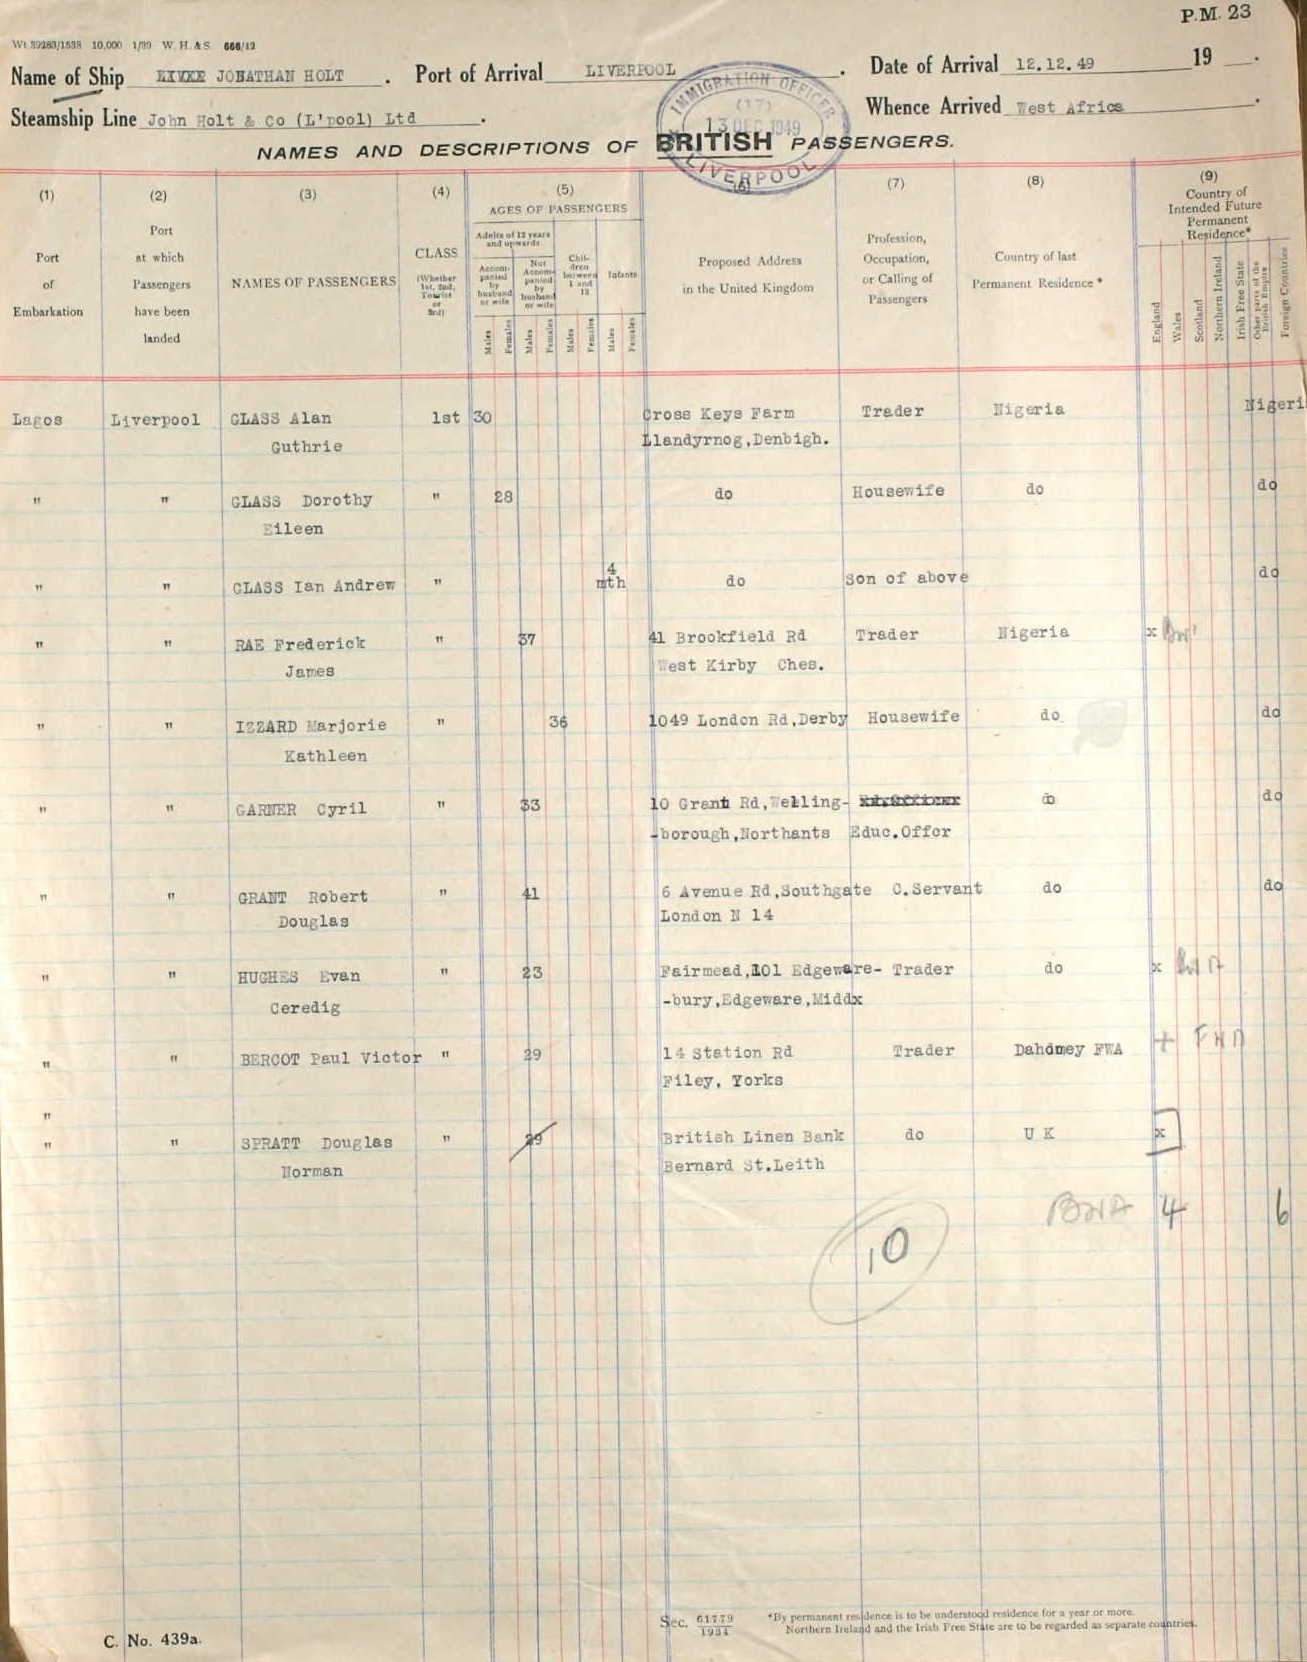 P.M. 23
Wt 39283/1538 10,000 1/39 W. H. & S. 666/12
Name of Ship JONATHAN HOLT . Port of Arrival LIVERPOOL . Date of Arrival 12.12.49 19 .
Steamship Line John Holt & Co (L'pool) Ltd . Whence Arrived West Africa .
IMMIGRATION OFFICER
(17)
13 DEC 1949
LIVERPOOL
NAMES AND DESCRIPTIONS OF BRITISH PASSENGERS.
(1) (2) (3) (4) (5) (6) (7) (8) (9)
Port of Embarkation
Port at which Passengers have been landed
NAMES OF PASSENGERS
CLASS (Whether 1st, 2nd, Tourist or 3rd)
AGES OF PASSENGERS
Adults of 12 years and upwards
Accompanied by husband or wife
Not Accompanied by husband or wife
Children between 1 and 12
Infants
Males Females Males Females Males Females Males Females
Proposed Address in the United Kingdom
Profession, Occupation, or Calling of Passengers
Country of last Permanent Residence *
Country of Intended Future Permanent Residence*
England Wales Scotland Northern Ireland Irish Free State Other parts of the British Empire Foreign Countries
Lagos Liverpool GLASS Alan 1st 30 Cross Keys Farm Trader Nigeria Nigeri
Guthrie Llandyrnog,Denbigh.
" " GLASS Dorothy " 28 do Housewife do do
Eileen
" " GLASS Ian Andrew " 4 mth do Son of above do
" " RAE Frederick " 37 41 Brookfield Rd Trader Nigeria x
James West Kirby Ches.
" " IZZARD Marjorie " 36 1049 London Rd,Derby Housewife do do
Kathleen
" " GARNER Cyril " 33 10 Grant Rd,Welling- do do
-borough,Northants Educ.Offcr
" " GRANT Robert " 41 6 Avenue Rd,Southgate C.Servant do do
Douglas London N 14
" " HUGHES Evan " 23 Fairmead,101 Edgeware- Trader do x BWA
Ceredig -bury,Edgeware,Middx
" " BERCOT Paul Victor " 29 14 Station Rd Trader Dahomey FWA + FWA
Filey, Yorks
"
" " SPRATT Douglas " 29 British Linen Bank do U K x
Norman Bernard St.Leith
BWA 4 6
10
C. No. 439a.
Sec. 61779/1934
*By permanent residence is to be understood residence for a year or more.
Northern Ireland and the Irish Free State are to be regarded as separate countries.